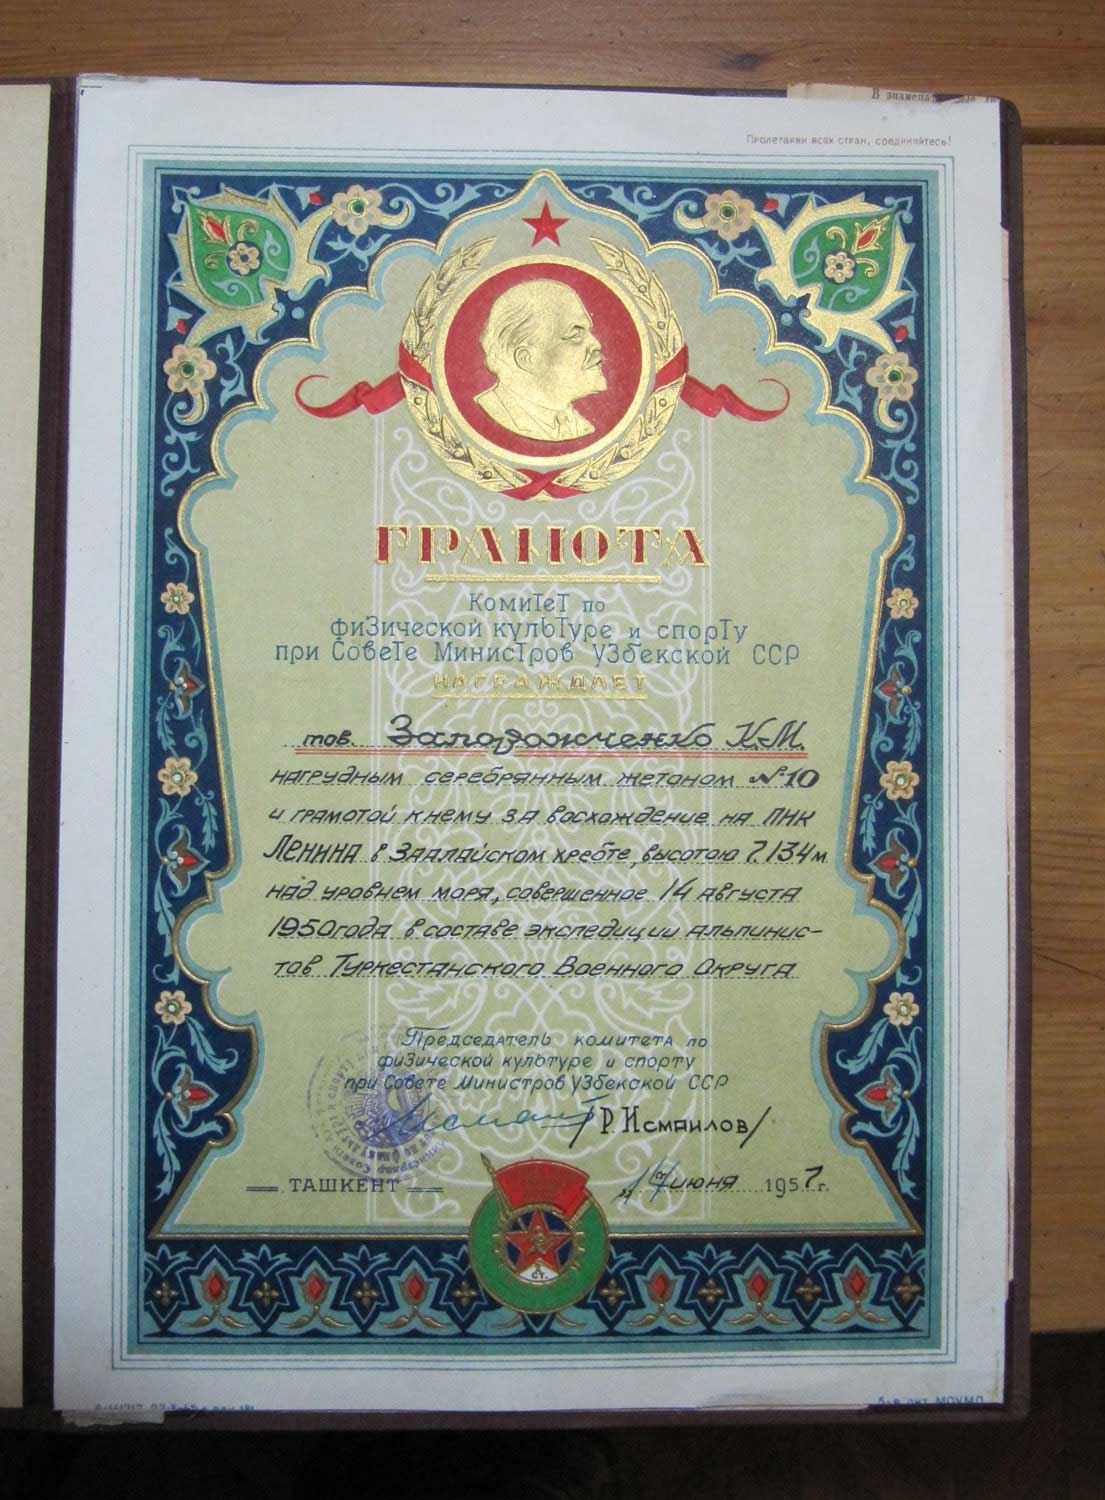 Пролетарии всех стран, соединяйтесь!
ГРАМОТА
Комитет по
физической культуре и спорту
при Совете Министров Узбекской ССР
НАГРАЖДАЕТ
тов. Запорожченко К.М.
нагрудным серебрянным жетоном №10
и грамотой к нему за восхождение на пик
Ленина в Заалайском хребте, высотою 7.134 м
над уровнем моря, совершенное 14 августа
1950 года в составе экспедиции альпинис-
тов Туркестанского Военного Округа
Председатель комитета по
физической культуре и спорту
при Совете Министров Узбекской ССР
/Р. Исмаилов/
ТАШКЕНТ
июня 1957 г.
1 СТ.